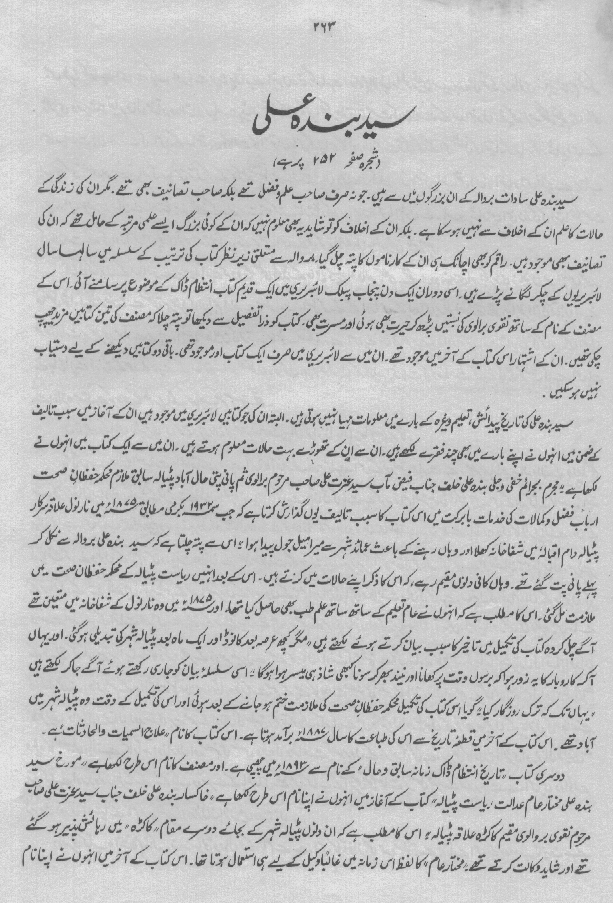 ۲۶۳
سید بندہ علی
(شجرہ صفحہ ۲۵۲ پر ہے)
سید بندہ علی سادات بروالہ کے ان بزرگوں میں سے ہیں۔ جو نہ صرف صاحب علم و فضل تھے بلکہ صاحب تصانیف بھی تھے۔ مگر ان کی زندگی کے
حالات کا علم ان کے اخلاف سے نہیں ہو سکا ہے۔ بلکہ ان کے اخلاف کو تو شاید یہ بھی معلوم نہیں کہ ان کے کوئی بزرگ ایسے علمی مرتبہ کے حامل تھے کہ ان کی
تصانیف بھی موجود ہیں۔ راقم کو بھی اچانک ہی ان کے کارناموں کا پتہ چل گیا۔ بروالہ سے متعلق زیر نظر کتاب کی ترتیب کے سلسلہ میں سالہا سال
لائبریریوں کے چکر لگانے پڑے ہیں۔ اسی دوران ایک دن پنجاب پبلک لائبریری میں ایک قدیم کتاب انتظام ڈاک کے موضوع پر سامنے آئی۔ اس کے
مصنف کے نام کے ساتھ نقوی برالوی کی نسبتیں پڑھ کر حیرت بھی ہوئی اور مسرت بھی۔ کتاب کو ذرا تفصیل سے دیکھا تو پتہ چلا کہ مصنف کی تین کتابیں مزید چھپ
چکی تھیں۔ ان کے اشتہار اس کتاب کے آخر میں موجود تھے۔ ان میں سے لائبریری میں صرف ایک کتاب اور موجود تھی۔ باقی دو کتابیں دیکھنے کے لیے دستیاب
نہیں ہو سکیں۔
سید بندہ علی کی تاریخ پیدائش، تعلیم وغیرہ کے بارے میں معلومات مہیا نہیں ہوتی ہیں۔ البتہ ان کی جو کتابیں لائبریری میں موجود ہیں ان کے آغاز میں سبب تالیف
کے ضمن میں انہوں نے اپنے بارے میں بھی چند فقرے لکھے ہیں۔ ان سے ان کے تھوڑے بہت حالات معلوم ہوتے ہیں۔ ان میں سے ایک کتاب میں انہوں نے
لکھا ہے "مجرم بجرائم خفی و جلی بندہ علی خلف جناب فیض مآب سید عزت علی صاحب مرحوم برالوی ثم پانی پتی حال آباد پٹیالہ سابق ملازم محکمہ حفظان صحت
ارباب فضل و کمالات کی خدمات بابرکت میں اس کتاب کا سبب تالیف یوں گذارش کرتا ہے کہ جب سمہ ۱۹۳۲ بکرمی مطابق ۱۸۷۵ء میں نارنول علاقہ سرکار
پٹیالہ دام اقبالہ میں شفاخانہ کھلا اور وہاں رہنے کے باعث عمائد شہر سے میرا میل جول پیدا ہوا" اس سے پتہ چلتا ہے کہ سید بندہ علی بروالہ سے نکل کر
پہلے پانی پت گئے تھے۔ وہاں کافی دنوں مقیم رہے، کہ اس کا ذکر اپنے حالات میں کرتے ہیں۔ اس کے بعد انہیں ریاست پٹیالہ کے محکمہ حفظان صحت میں
ملازمت مل گئی۔ اس کا مطلب ہے کہ انہوں نے عام تعلیم کے ساتھ ساتھ علم طب بھی حاصل کیا تھا۔ اور ۱۸۷۵ء میں وہ نارنول کے شفاخانہ میں متعین تھے
آگے چل کر وہ کتاب کی تکمیل میں تاخیر کا سبب بیان کرتے ہوئے لکھتے ہیں، "مگر کچھ عرصہ بعد کانوڈ اور ایک ماہ بعد پٹیالہ شہر کی تبدیلی ہو گئی۔ اور یہاں
آ کر کاروبار کا یہ زور ہوا کہ برسوں وقت پر کھانا اور نیند بھر کر سونا کبھی شاذ ہی میسر ہوا ہو گا" اسی سلسلۂ بیان کو جاری رکھتے ہوئے آگے جا کر لکھتے ہیں
"یہاں تک کہ ترک روزگار کیا" گویا اس کتاب کی تکمیل محکمہ حفظان صحت کی ملازمت ختم ہو جانے کے بعد ہوئی اور اس کی تکمیل کے وقت وہ پٹیالہ شہر میں
آباد تھے۔ اس کتاب کے آخر میں قطعہ تاریخ سے اس کی طباعت کا سال ۱۸۸۷ء برآمد ہوتا ہے۔ اس کتاب کا نام "علاج السمیات والحادثات" ہے۔
دوسری کتاب "تاریخ انتظام ڈاک زمانہ سابق و حال" کے نام سے ۱۸۹۲ء میں چھپی ہے۔ اور مصنف کا نام اس طرح لکھا ہے "مورخ سید
بندہ علی مختار عام عدالت ریاست پٹیالہ" کتاب کے آغاز میں انہوں نے اپنا نام اس طرح لکھا ہے، "خاکسار بندہ علی خلف جناب سید عزت علی صاحب
مرحوم نقوی بروالوی مقیم کاکڑہ علاقہ پٹیالہ" اس کا مطلب ہے کہ ان دنوں پٹیالہ شہر کے بجائے دوسرے مقام "کاکڑہ" میں رہائش پذیر ہو گئے
تھے اور شاید وکالت کرتے تھے، "مختار عام" کا لفظ اس زمانہ میں غالباً وکیل کے لیے ہی استعمال ہوتا تھا۔ اس کتاب کے آخر میں انہوں نے اپنا نام